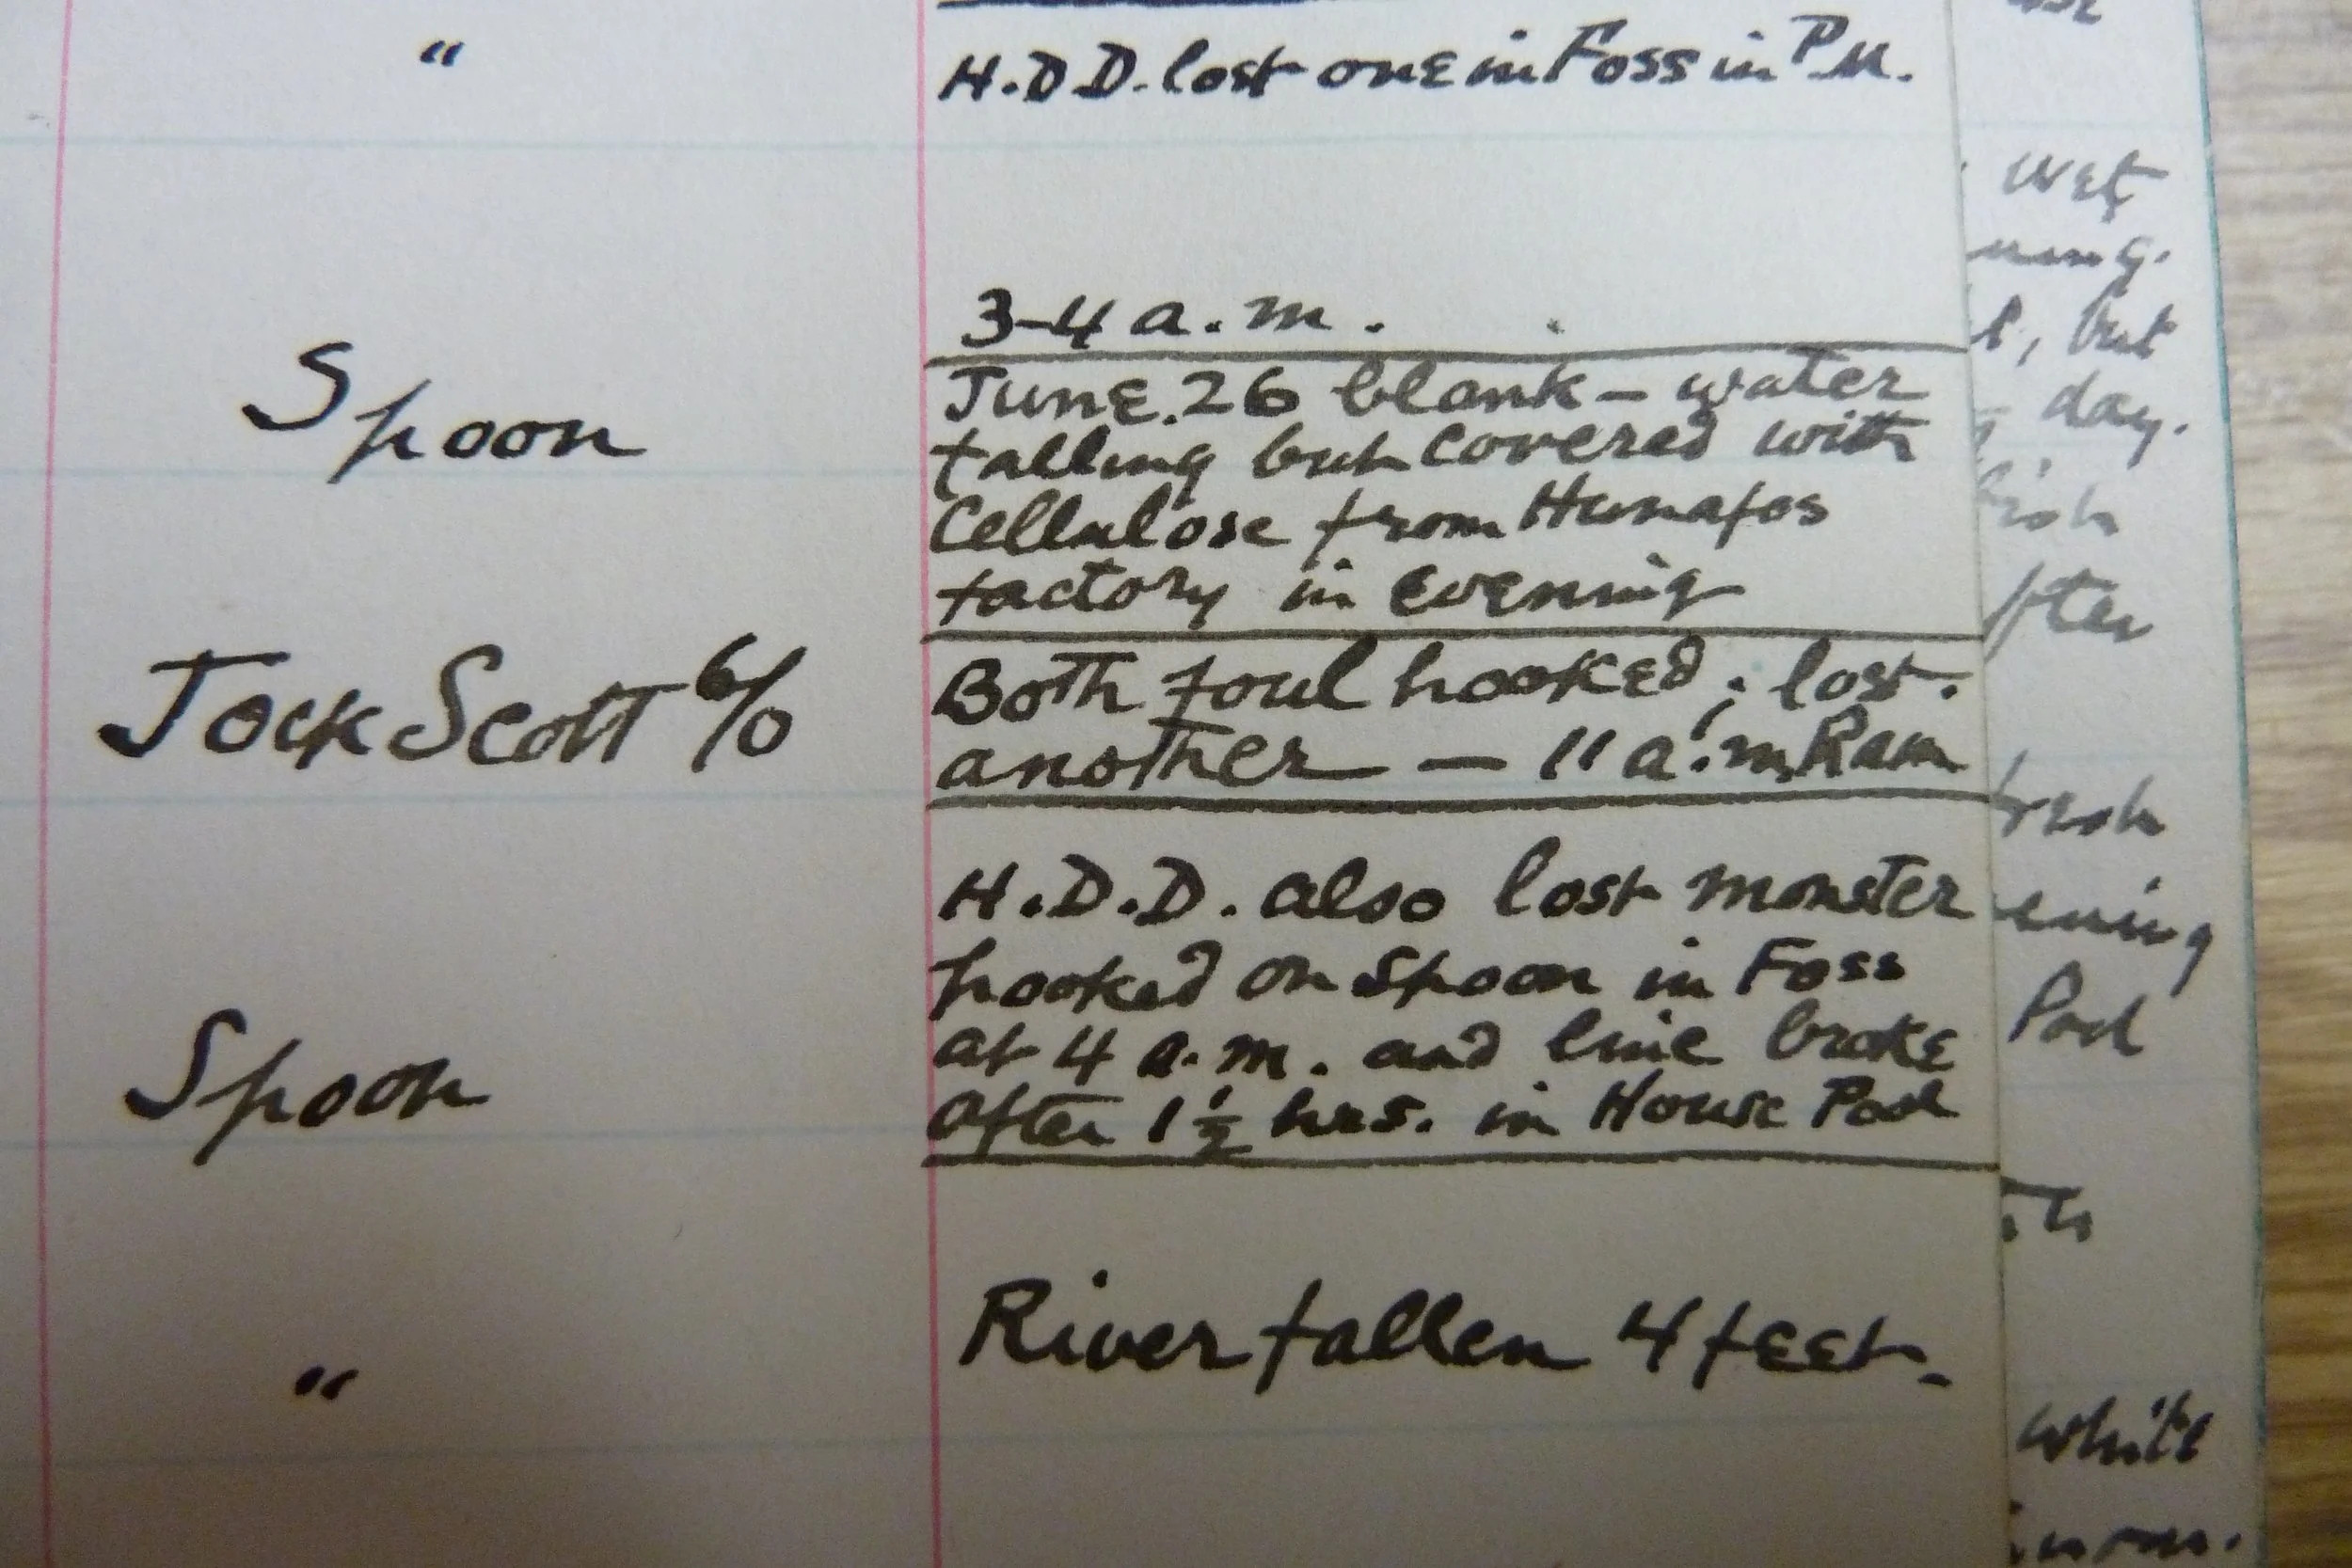 "
H.D D. lost one in Foss in P.M.
3-4 a.m.
Spoon
June. 26 blank - water
falling but covered with
Cellulose from Hunsfos
factory in evening
Jock Scott 6/0
Both foul hooked; lost.
another — 11 a.m. Rain
H.D.D. also lost monster
hooked on Spoon in Foss
at 4 a.m. and line broke
after 1½ hrs. in House Pool
Spoon
River fallen 4 feet.
"
wet
but
day.
Pool
white